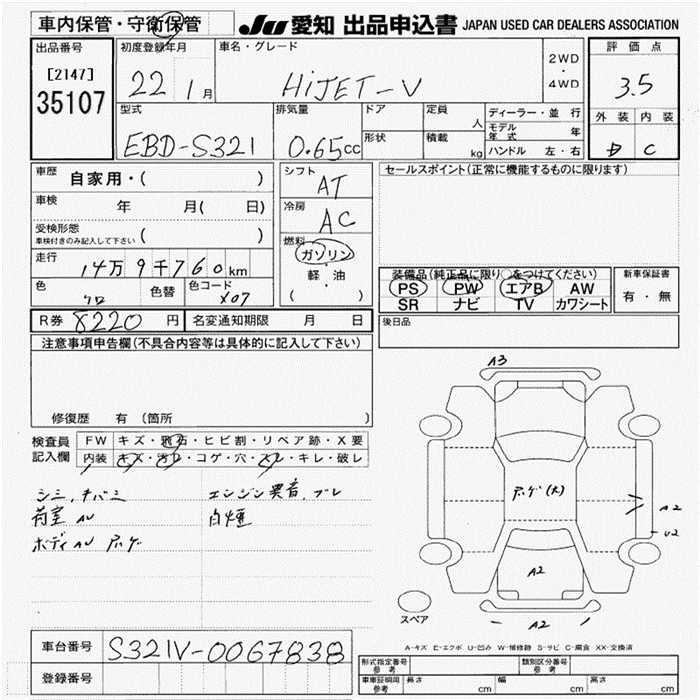 車内保管・守衛保管 JU 愛知 出品申込書 JAPAN USED CAR DEALERS ASSOCIATION
出品番号 初度登録年月 車名・グレード 2WD ・ 4WD 評価点
[2147] 35107 22 1月 HiJET-V 3.5
型式 排気量 ドア 定員 人 ディーラー・並 行 外装 内装
EBD-S321 0.65cc 形状 積載 kg モデル年式 年 D C
ハンドル 左・右
車歴 自家用・( ) シフト AT セールスポイント(正常に機能するものに限ります)
車検 年 月( 日) 冷房 AC
受検形態 車検付きのみ記入して下さい ( )
燃料 ガソリン 軽・油 ( )
走行 14万9千760km
装備品(純正品に限り○をつけてください) 新車保証書
色 クロ 色替 色コード X07
PS PW エアB AW 有・無
SR ナビ TV カワシート
R券 8220 円 名変通知期限 月 日 後日品
注意事項申告欄(不具合内容等は具体的に記入して下さい)
修復歴 有 (箇所 )
検査員記入欄 FW キズ・飛石・ヒビ割・リペア跡・X要
内装 キズ・汚れ・コゲ・穴・スレ・キレ・破レ
シミ,キバミ エンジン異音,ブレ
荷室 AU 白煙
ボディAU アハゲ
A3
アハゲ(大)
A2
U2
A2
A2
スペア
A-キズ E-エクボ U-凹み W-補修跡 S-サビ C-腐食 XX-交換済
車台番号 S321V-0067838
登録番号
形式指定番号 参考 類別区分番号 参考
車車証明用 参考 長さ cm 幅 cm 高さ cm